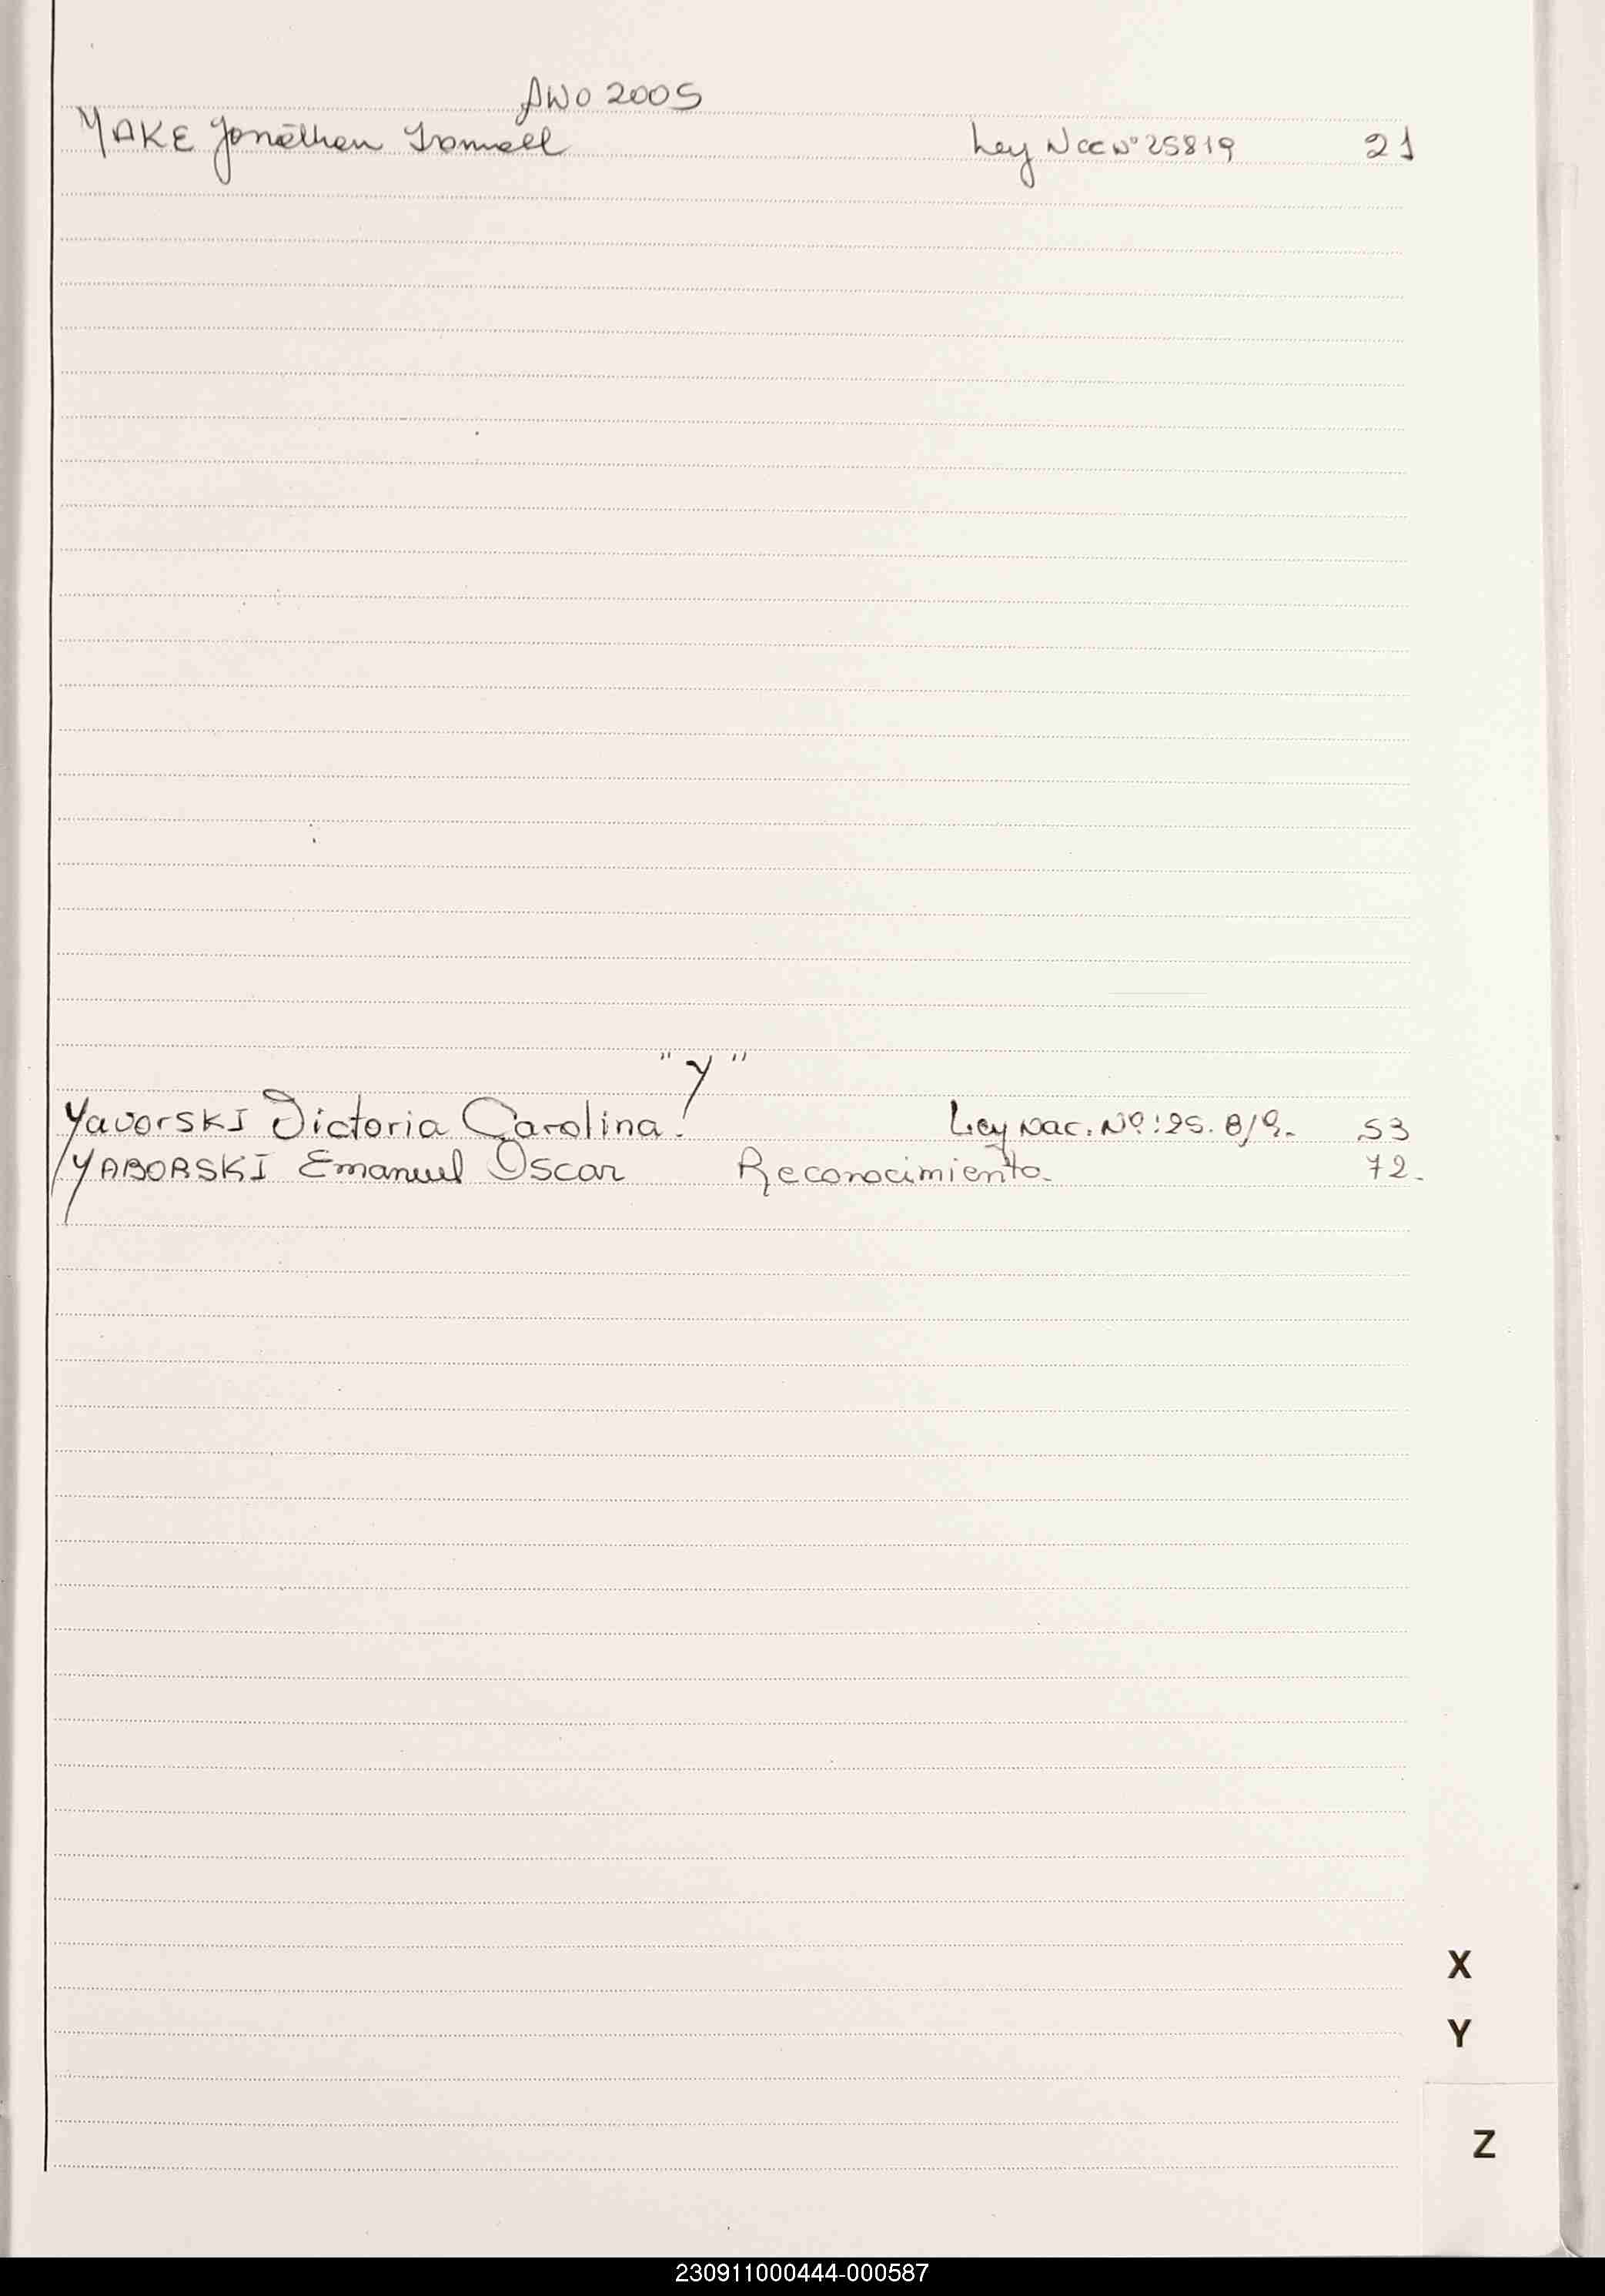 AÑO 2005
YAKE Jonathan Ismael Ley Nac Nº 25819 21
"Y"
Yavorski Victoria Carolina. Ley Nac. Nº: 25.819.- 53
YABORSKI Emanuel Oscar Reconocimiento.- 72.-
X
Y
Z
230911000444-000587